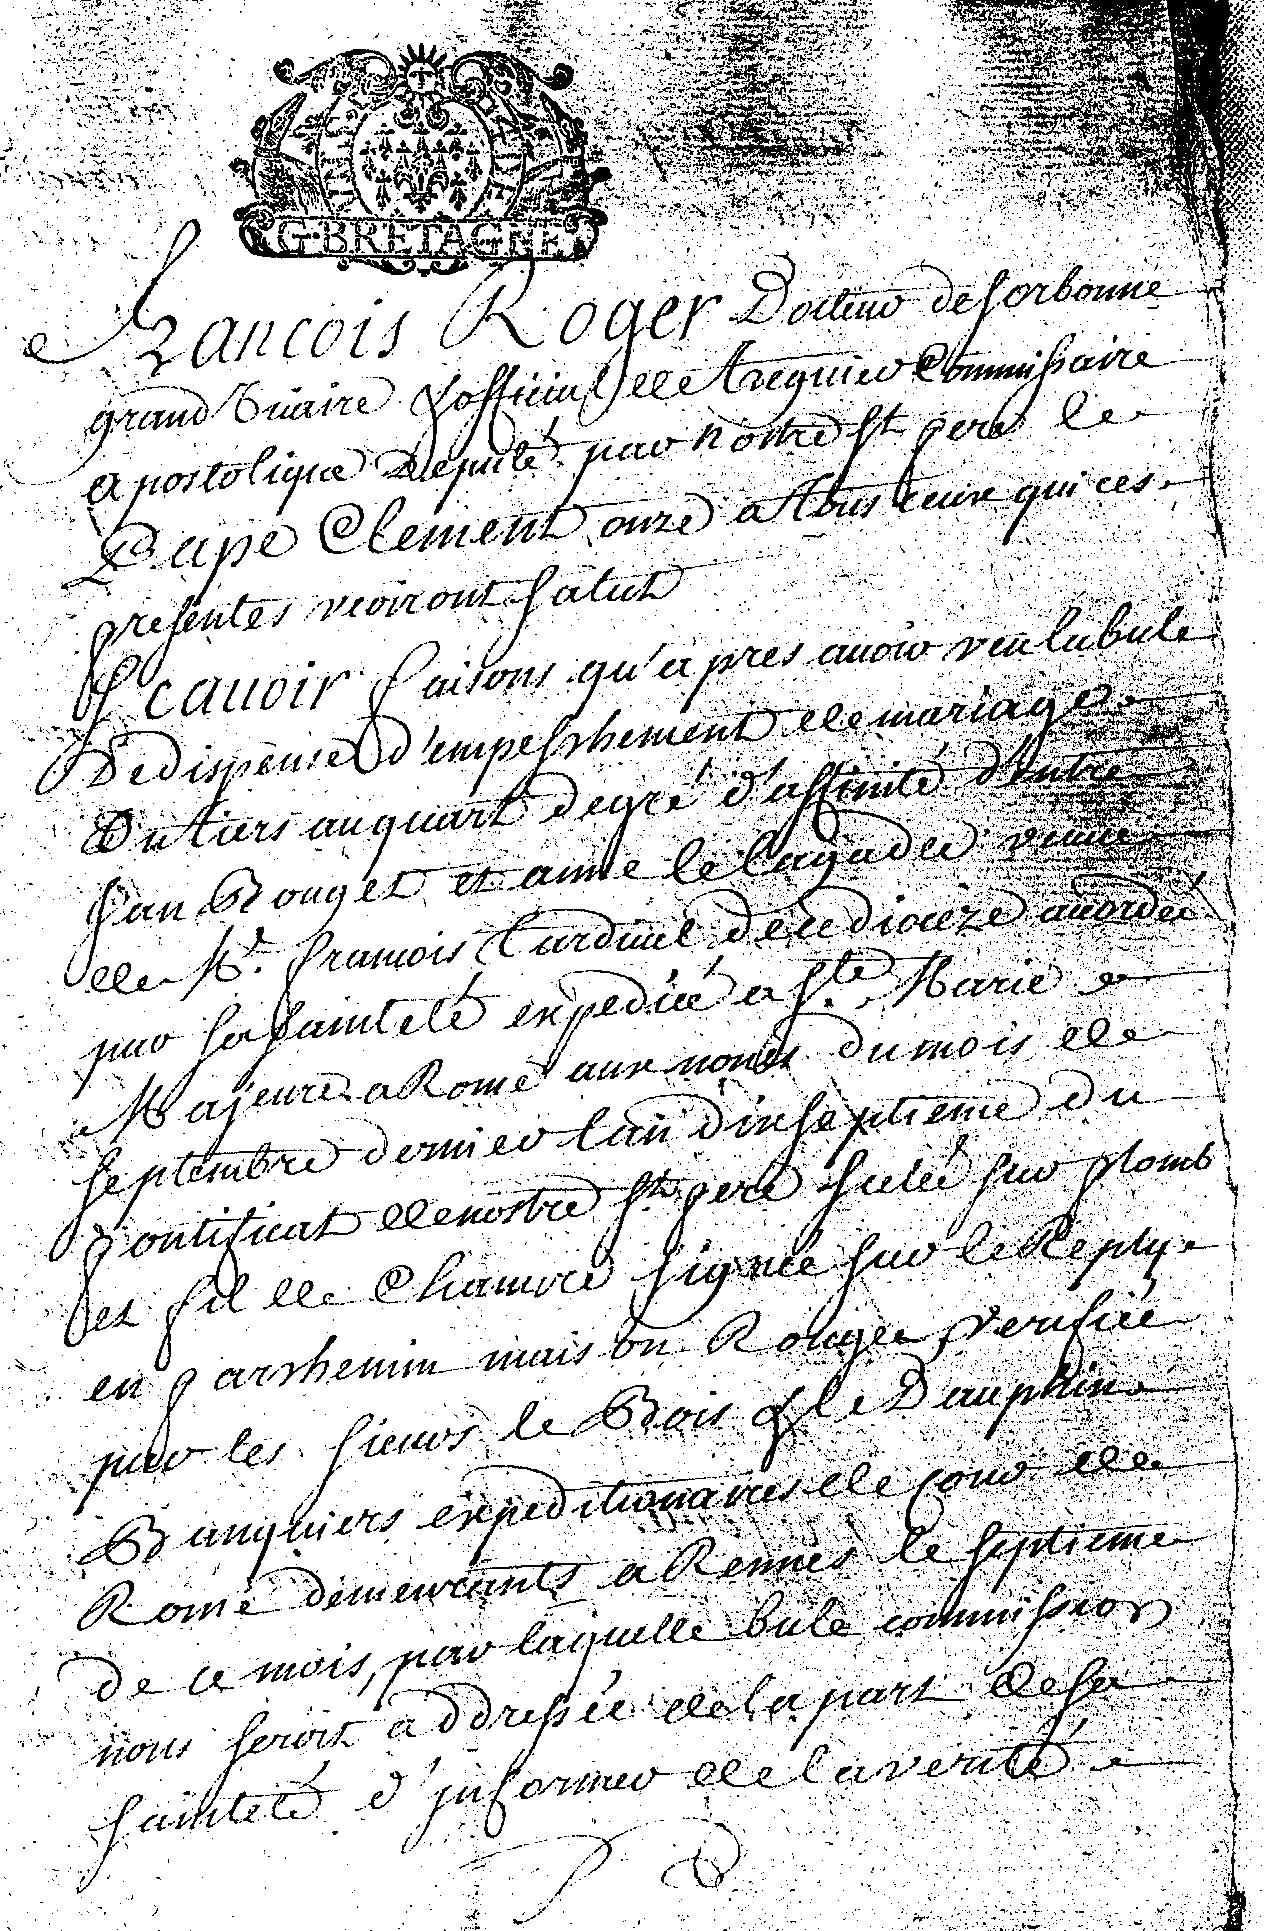 G·BRETAGNE
François Roger Docteur de sorbonne
grand vicaire & official de treguier Commissaire
apostolique deputé par nostre st pere le
Pape Clement onze a tous ceux qui ces
presentes veoiront salut
Scauoir faisons qu'apres auoir veu la bule
de dispense d'empeschement de mariage
du tiers au quart degré d'affinité d'entre
Jan Rouget et anne le lagadec veuue
de Mr. francois Cardinel de ce dioceze accordée
par sa sainteté expediée a Ste. Marie
Majeure a Rome aux nones du mois de
septembre dernier l'an dixseptieme du
pontificat de nostre st pere scelée sur plomb
et fil de Chanvre signée sur le Reply
en parchemin mais en Rouge, verifiée
par les sieurs le Bois & le Dauphin
Banquiers expeditionnaires de cour de
Rome demeurants a Rennes le septieme
de ce mois, par laquelle bule commission
nous seroit addressée de la part de sa
sainteté d'informer de la verité